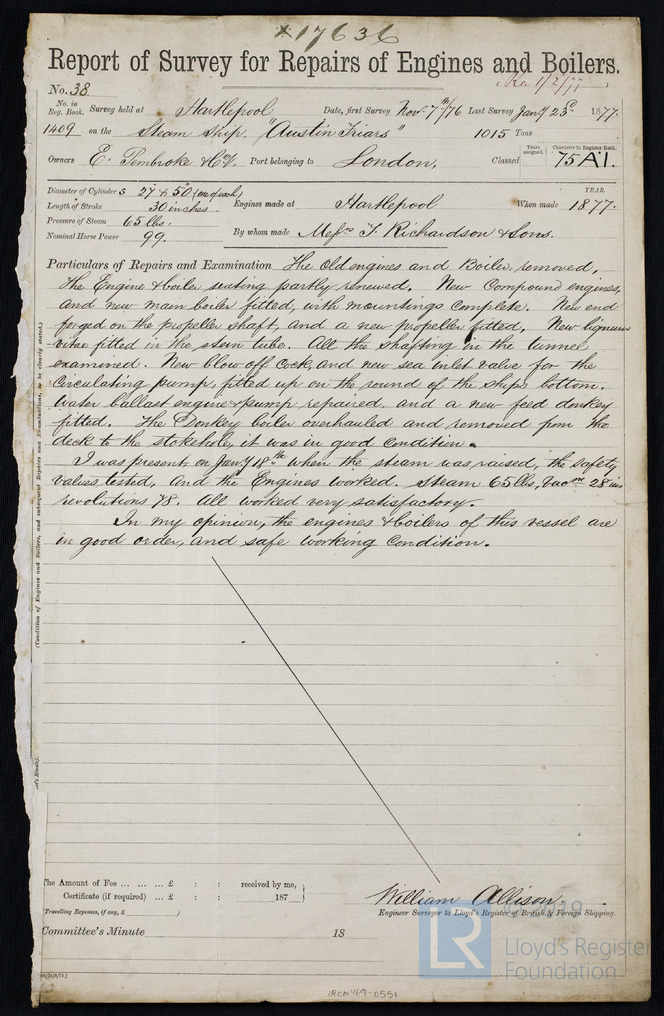 ×17636
Report of Survey for Repairs of Engines and Boilers.
No. 38. (Rec 1/2/77)
No. in Reg. Book. Survey held at Hartlepool Date, first Survey Nov. 7th/76 Last Survey Jany 23rd 1877.
1409 on the Steam Ship "Austin Friars" 1015 Tons
Owners E. Pembroke & Co. Port belonging to London. Classed Years assigned. Character in Register Book. 75 A.1.
Diameter of Cylinders 27 & 50 (one of each)
Length of Stroke 30 inches. Engines made at Hartlepool When made YEAR. 1877.
Pressure of Steam 65 lbs.
Nominal Horse Power 99. By whom made Messrs T. Richardson & Sons.
Particulars of Repairs and Examination The Old engines and Boiler removed,
the Engine & boiler seating partly renewed. New Compound engines,
and new main boiler fitted, with mountings complete. New end
forged on the propeller shaft, and a new propeller fitted. New lignum
vitae fitted in the stern tube. All the shafting in the tunnel
examined. New blow off cock, and new sea inlet valve for the
Circulating pump, fitted up on the round of the ships bottom.
Water ballast engine & pump repaired, and a new feed donkey
fitted. The Donkey boiler overhauled and removed from the
deck to the stokehole, it was in good condition.
I was present, on Jany 18th when the steam was raised, the safety
valves tested, and the Engines worked. Steam 65 lbs, Vacm 28 ins
revolutions 78. All worked very satisfactory.
In my opinion, the engines & boilers of this vessel are
in good order, and safe working condition.
(Condition of Engines and Boilers, and subsequent Repairs and Examinations, to be clearly stated.)
The Amount of Fee ... ... ... £ : : received by me,
Certificate (if required) ... £ : : 187
(Travelling Expenses, if any, £ )
William Allison.
Engineer Surveyor to Lloyd's Register of British & Foreign Shipping.
Committee's Minute 18
IRON469-0551
© 2019
LR
Lloyd's Register
Foundation